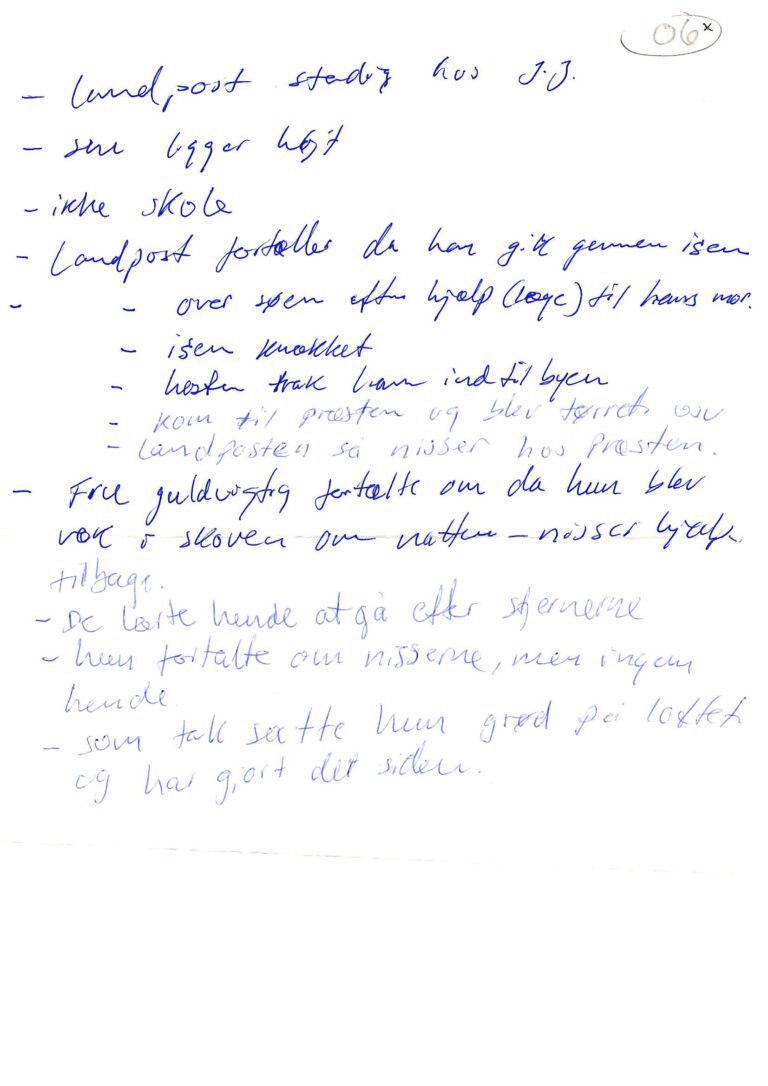 06x
- Landpost stadig hos J.J.
- sne ligger højt
- ikke skole
- Landpost fortæller da han gik gennem isen
- - over søen efter hjælp (læge) til hans mor.
- isen knækket
- hesten trak ham ind til byen
- kom til præsten og blev tørret osv
- Landposten så nisser hos Præsten.
- Fru guldvigtig fortalte om da hun blev
væk i skoven om natten - nisser hjælp
tilbage.
- De lærte hende at gå efter stjernerne
- hun fortalte om nisserne, men ingen
hende
- som tak satte hun grød på loftet
og har gjort det siden.